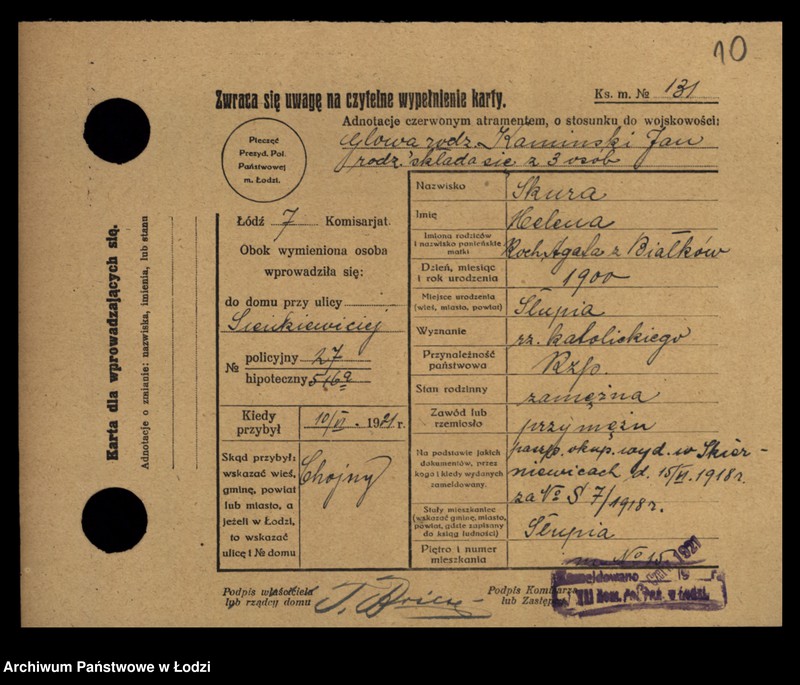 10
Zwraca się uwagę na czytelne wypełnienie karty.
Ks. m. № 131
Adnotacje czerwonym atramentem, o stosunku do wojskowości:
Głowa rodz. Kaminski Jan
rodz. składa się z 3 osob
Pieczęć
Prezyd. Pol.
Państwowej
m. Łodzi.
Karta dla wprowadzających się.
Adnotacje o zmianie: nazwiska, imienia, lub stanu
Łódź 7 Komisarjat.
Obok wymieniona osoba
wprowadziła się:
do domu przy ulicy
Sienkiewiciej
№ policyjny 27
hipoteczny 516a
Kiedy przybył 10/VI - 1921 r.
Skąd przybył:
wskazać wieś,
gminę, powiat
lub miasto, a
jeżeli w Łodzi,
to wskazać
ulicę i № domu
Chojny
Nazwisko Skura
Imię Helena
Imiona rodziców
i nazwisko panieńskie
matki
Roch, Agata z Białków
Dzień, miesiąc
i rok urodzenia
1900
Miejsce urodzenia
(wieś, miasto, powiat)
Słupia
Wyznanie rz. katolickiego
Przynależność
państwowa
Rzp.
Stan rodzinny zamężna
Zawód lub
rzemiosło
przy mężu
Na podstawie jakich
dokumentów, przez
kogo i kiedy wydanych
zameldowany.
paszp. okup. wyd. w Skier-
niewicach d. 15/VI. 1918 r.
za № S 7/1918 r.
Stały mieszkaniec
(wskazać gminę, miasto,
powiat, gdzie zapisany
do ksiąg ludności)
Słupia
Piętro i numer
mieszkania
m № 15
Podpis właściciela
lub rządcy domu
Podpis Komisarza
lub Zastępcy
Zameldowano 1921
19 r.
VII Kom. Pol. Pań. w Łodzi.
Archiwum Państwowe w Łodzi